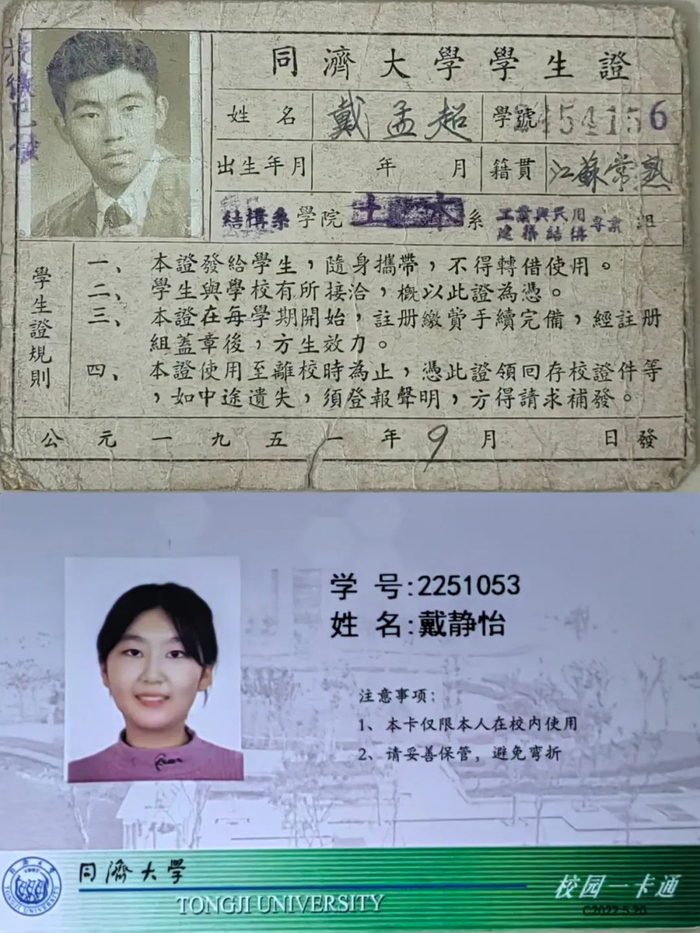 同濟大學學生證
姓名 戴孟超 學號 54156
出生年月 年 月 籍貫 江蘇常熟
結構系 學院 土木 系 工業與民用建築結構專業 組
學生證規則
一、本證發給學生，隨身攜帶，不得轉借使用。
二、學生與學校有所接洽，概以此證為憑。
三、本證在每學期開始，註册繳費手續完備，經註册
組蓋章後，方生效力。
四、本證使用至離校時為止，憑此證領回存校證件等
，如中途遺失，須登報聲明，方得請求補發。
公元一九五一年9月 日發
学 号:2251053
姓 名:戴静怡
注意事项:
1、本卡仅限本人在校内使用
2、请妥善保管，避免弯折
同濟大学
TONGJI UNIVERSITY
校园一卡通
C2022.5.20